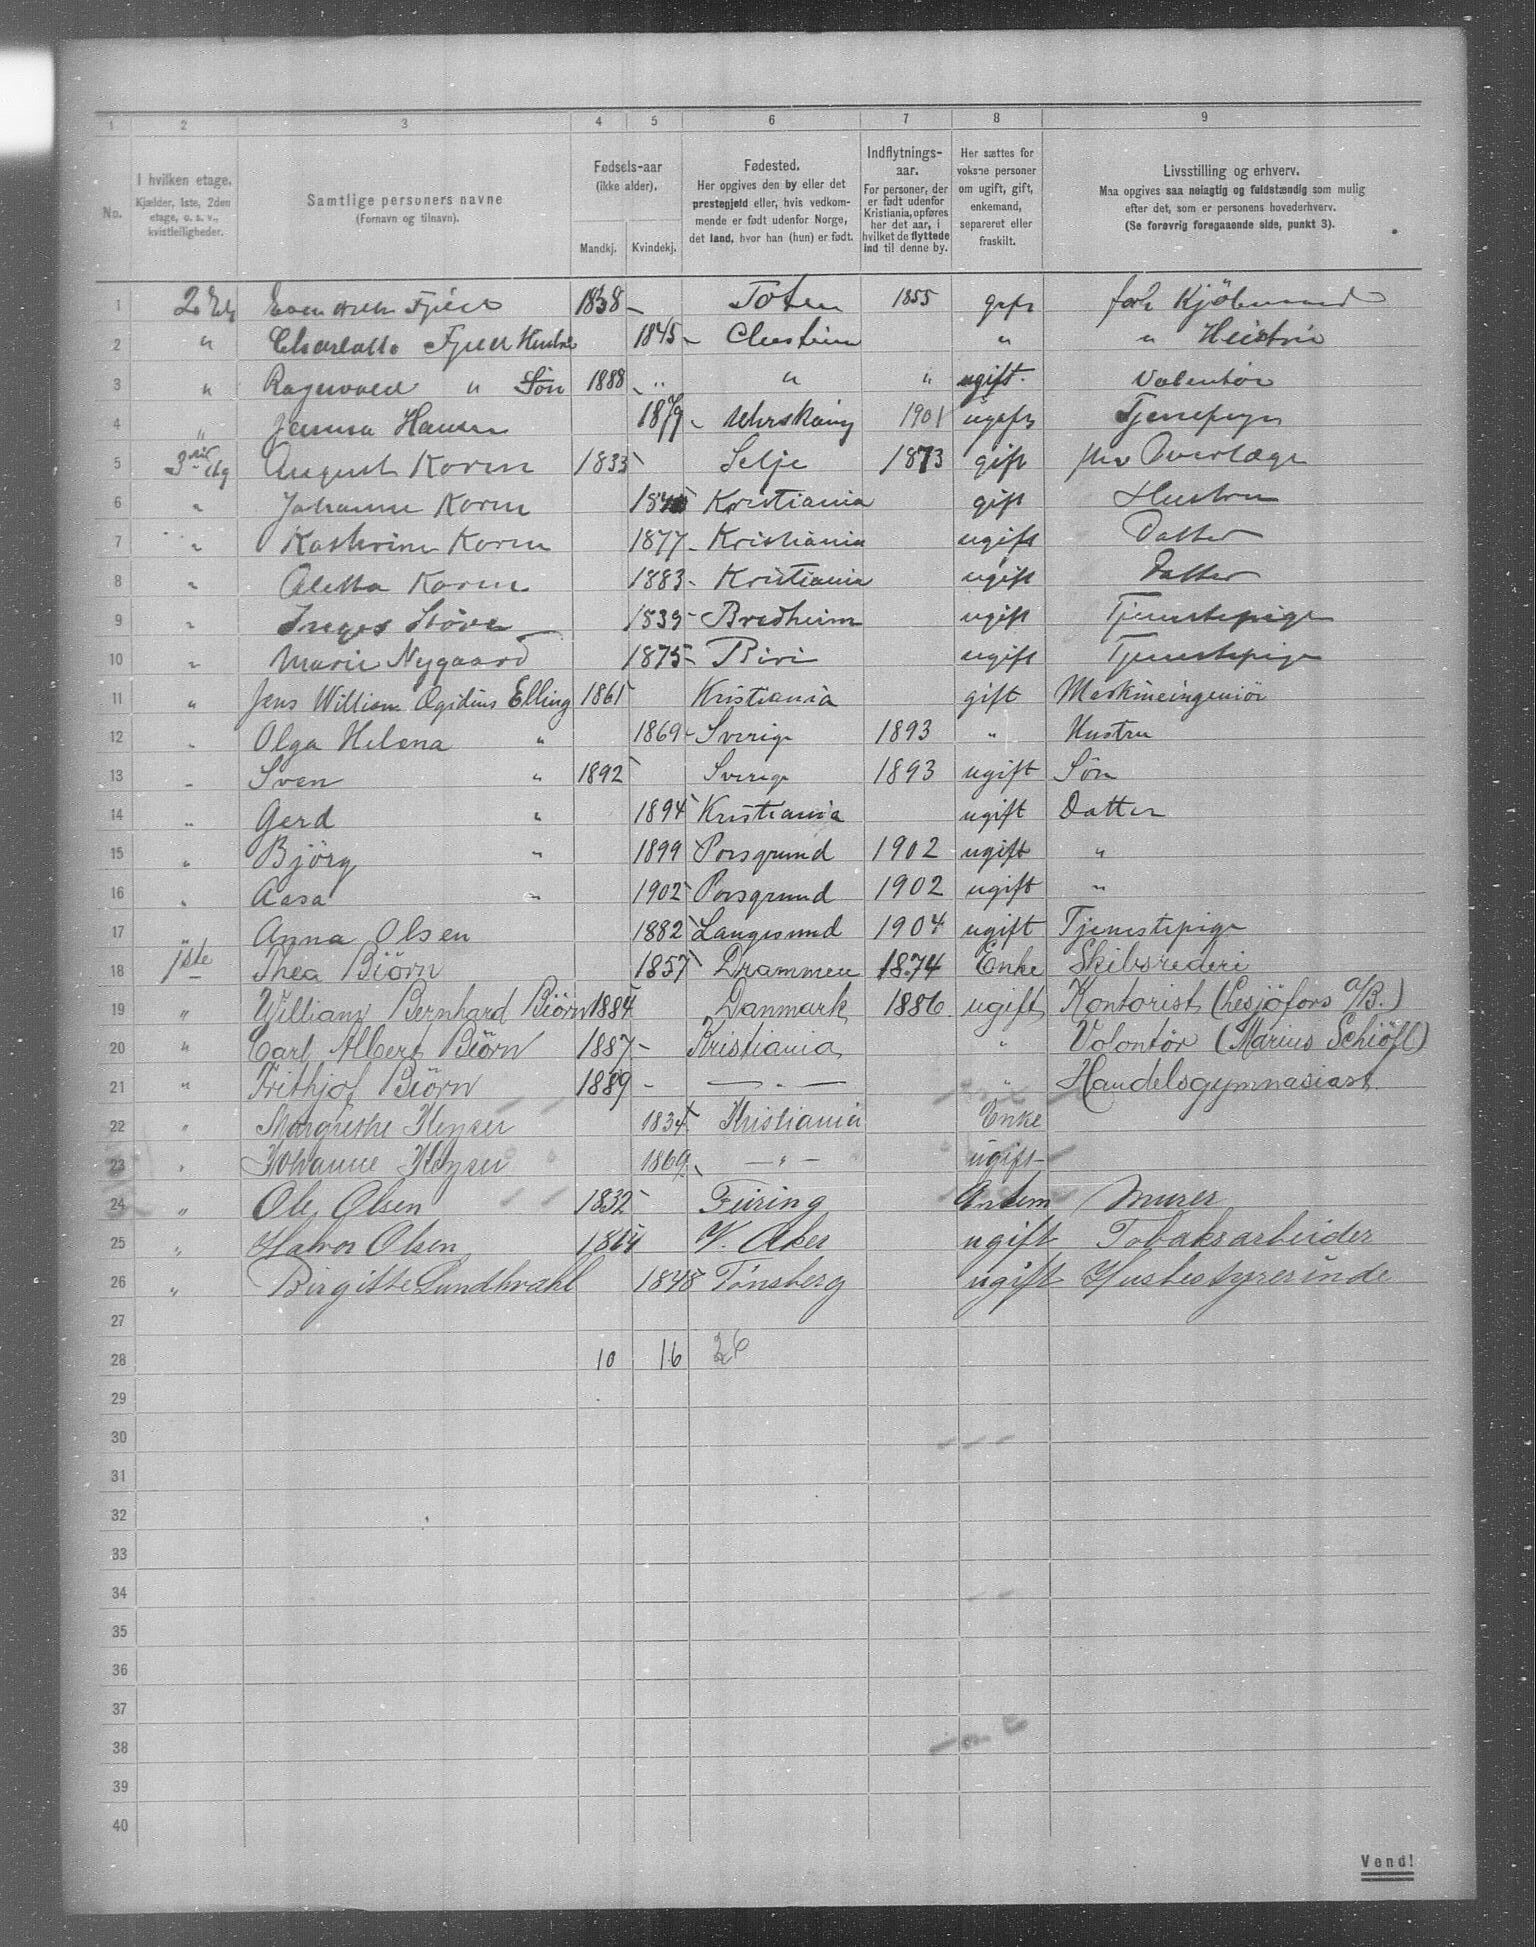 1 2 3 4 5 6 7 8 9
No. I hvilken etage. Kjælder, 1ste, 2den etage, o. s. v., kvistleiligheder. Samtlige personers navne (Fornavn og tilnavn). Fødsels-aar (ikke alder). Mandkj. Kvindekj. Fødested. Her opgives den by eller det prestegjeld eller, hvis vedkommende er født udenfor Norge, det land, hvor han (hun) er født. Indflytnings-aar. For personer, der er født udenfor Kristiania, opføres her det aar, i hvilket de flyttede ind til denne by. Her sættes for voksne personer om ugift, gift, enkemand, separeret eller fraskilt. Livsstilling og erhverv. Maa opgives saa nøiagtig og fuldstændig som mulig efter det, som er personens hovederhverv. (Se forøvrig foregaaende side, punkt 3).
1 2 Fjeld 1838 - Toten 1855 gift
2 " Charlotte Fjeld Hustru 1845 - " " Hustru
3 " Ragnvald " Søn 1888 " " " ugift. Volentør
4 " Hansen 1879 - Urskoug 1901 ugift Tjenepige
5 3 Etg August Koren 1835 Selje 1873 gift Overlæge
6 " Johanne Koren Kristiania gift Hustru
7 " Kathrine Koren 1877 - Kristiania ugift Datter
8 " Aletta Koren 1883 - Kristiania ugift Datter
9 " 1839 - Bredheim ugift Tjenestepige
10 " Marie Nygaard 1875 - Biri ugift Tjenestepige
11 " Jens William Ægidius Elling 1861 Kristiania gift Maskineingeniør
12 " Olga Helena " 1869 - Sverige 1893 " Hustru
13 " Sven " 1892 Sverige 1893 ugift Søn
14 " Gerd " 1894 Kristiania ugift Datter
15 " Bjørg " 1899 Porsgrund 1902 ugift "
16 " Aasa " 1902 Porsgrund 1902 ugift "
17 " Anna Olsen 1882 Langesund 1904 ugift Tjenestepige
18 1ste Thea Biörn 1857 Drammen 1874 Enke Skibsrederi
19 " William Bernhard Biörn 1884 Danmark 1886 ugift Kontorist (Lesjöfors A/B.)
20 " Carl Albert Biörn 1887 - Kristiania " Volontør (Marius Schiöll)
21 " Frithjof Biörn 1889 - — " — " Handelsgymnasiast
22 " Margrethe Keyser 1834 Kristiania Enke
23 " Johanne Keyser 1869 — " — ugift
24 " Ole Olsen 1832 Furing Enkem Murer
25 " Halvor Olsen 1864 V. Aker ugift Tobaksarbeider
26 " Birgitte Lundhvahl 1848 Tönsberg ugift Husbestyrerinde
27
28 10 16 26
29
30
31
32
33
34
35
36
37
38
39
40
Vend!